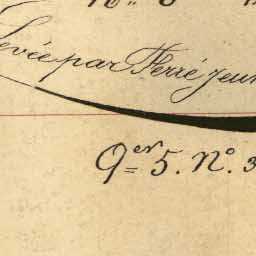 Levée par Ferré jeun
Qer 5. No. 3